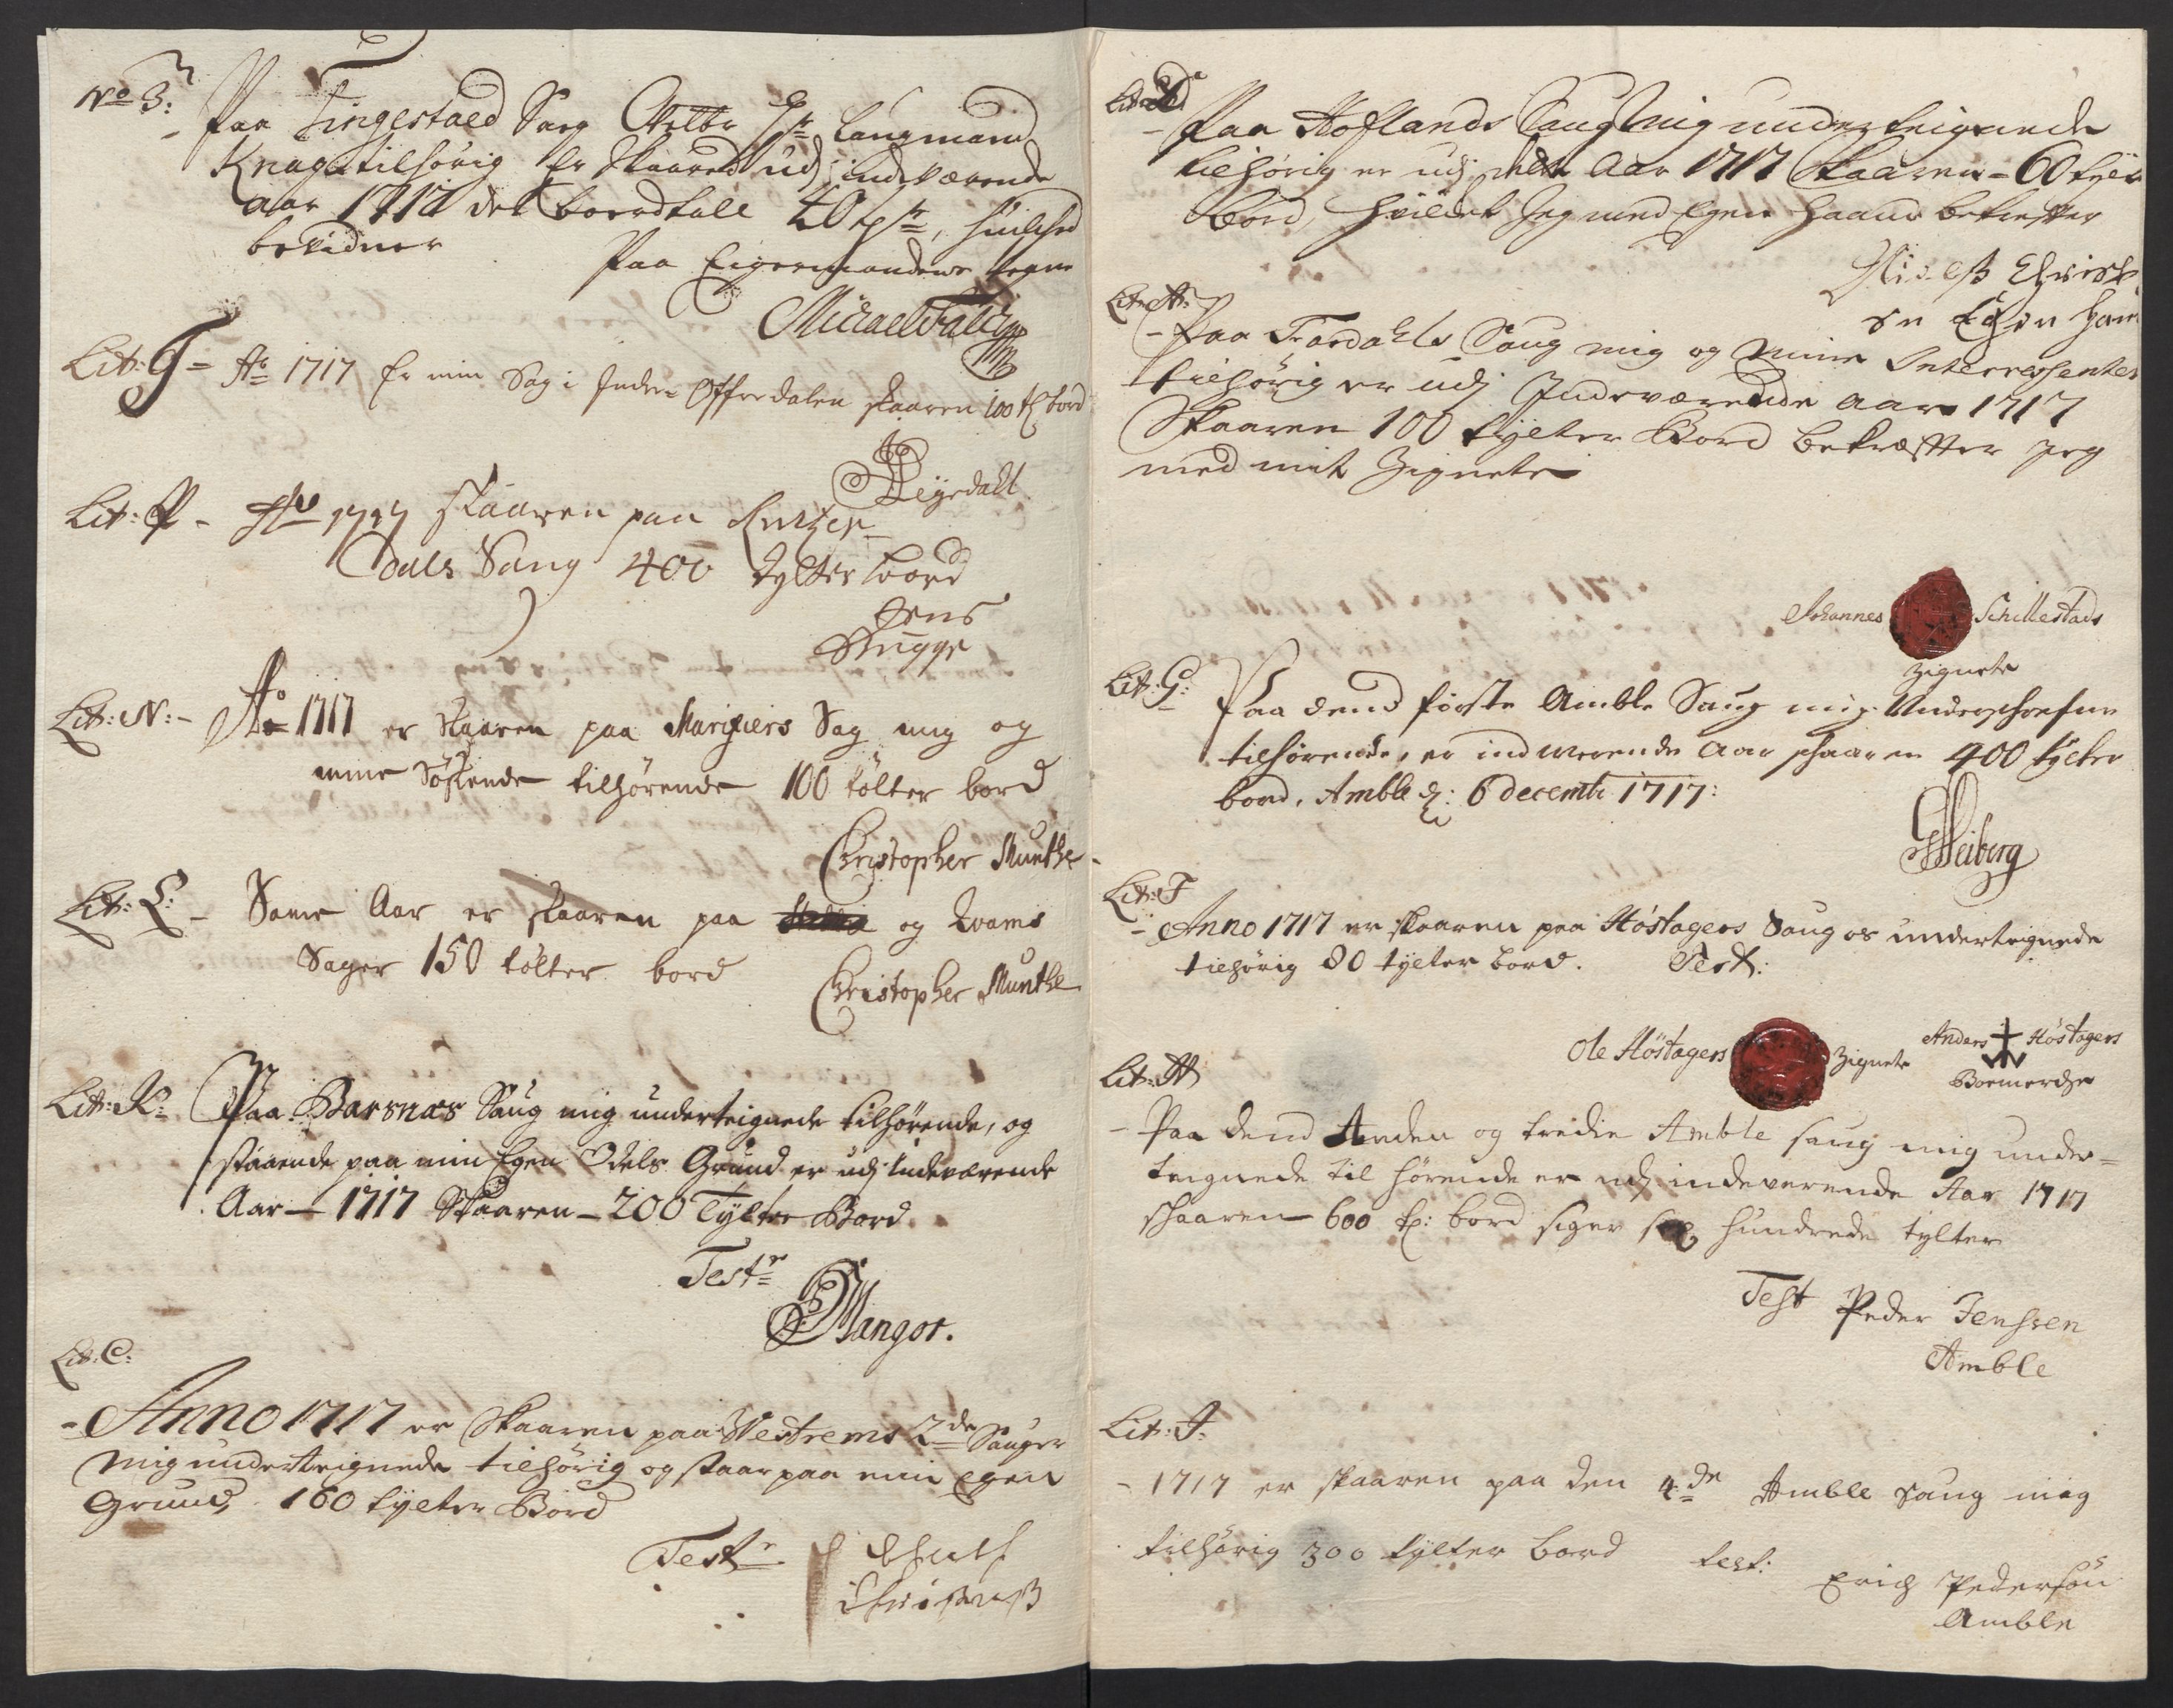 No 3: Paa Tingestaed Saug Hr Laugmand
Knag tilhørig Er Skaaret udj indeværende
aar 1717 det bordtall 40 , hvilched
bevidner
Paa Eigermandens vegne
Michael Falch
Lit: T= Ao 1717 Er min Sag i Indre Offerdalen skaaren 100 tl bord
Leÿrdahl
Lit: P - Ao 1717 skaaren paa
dals Saug 400 tylter bord
Jens
Bugge
Lit: N:- Ao 1717 er skaaren paa Marifiers Sag mig og
mine Søskende tilhørende 100 tölter bord
Christopher Munthe
Lit: L: - Samme Aar er skaaren paa og Qvams
Sager 150 tölter bord
Christopher Munthe
Lit: K: Paa Barsnæs Saug mig underteignede tilhørende, og
staaende paa min Egen Odels Grund er udj Indeværende
Aar - 1717 Skaaren - 200 Tylter Bord
Test
Mangor.
Lit: C:
- Anno 1717 er Skaaren paa Westrems 2de Sauger
mig underteignede tilhørig og staar paa min Egen
Grund 160 tylter Bord
Test
Lit: D
- Paa Hoflands Saug mig underteignede
tilhørig er udj dette Aar 1717 Skaaren - 60 tylt
Bord, hvilcket Jeg med Egen haand bekrefter
Christ
sn Egen han
Lit: A:
- Paa Fardahls Saug mig og mine Interressenter
tilhørig er udj Indeværende aar 1717
Skaaren 100 tylter Bord bekræfter Jeg
med mit Zignete
Johannes Schillestads
Zignete
Lit: G: Paa dend første Amble Saug mig Underschrefne
tilhørende, er indwerende aar schaaren 400 tylter
bord. Amble d: 6 decembr 1717:
GHeiberg
Lit: F
- Anno 1717 er skaaren paa Høstagers Saug os underteignede
tilhørig 80 tylter bord. Test:
Ole Höstagers Zignete Anders Høstagers
Boemerche
Lit: H
- Paa dend Anden og tredie Amble saug mig under=
teignede til hørende er udj indeverende Aar 1717
schaaren 600 tl: bord siger sex hundrede tylter
Test Peder Jenssen
Amble
Lit: I:
- 1717 er skaaren paa den 4de Amble saug mig
tilhørig 300 tylter bord test:
Erich Pedersøn
Amble